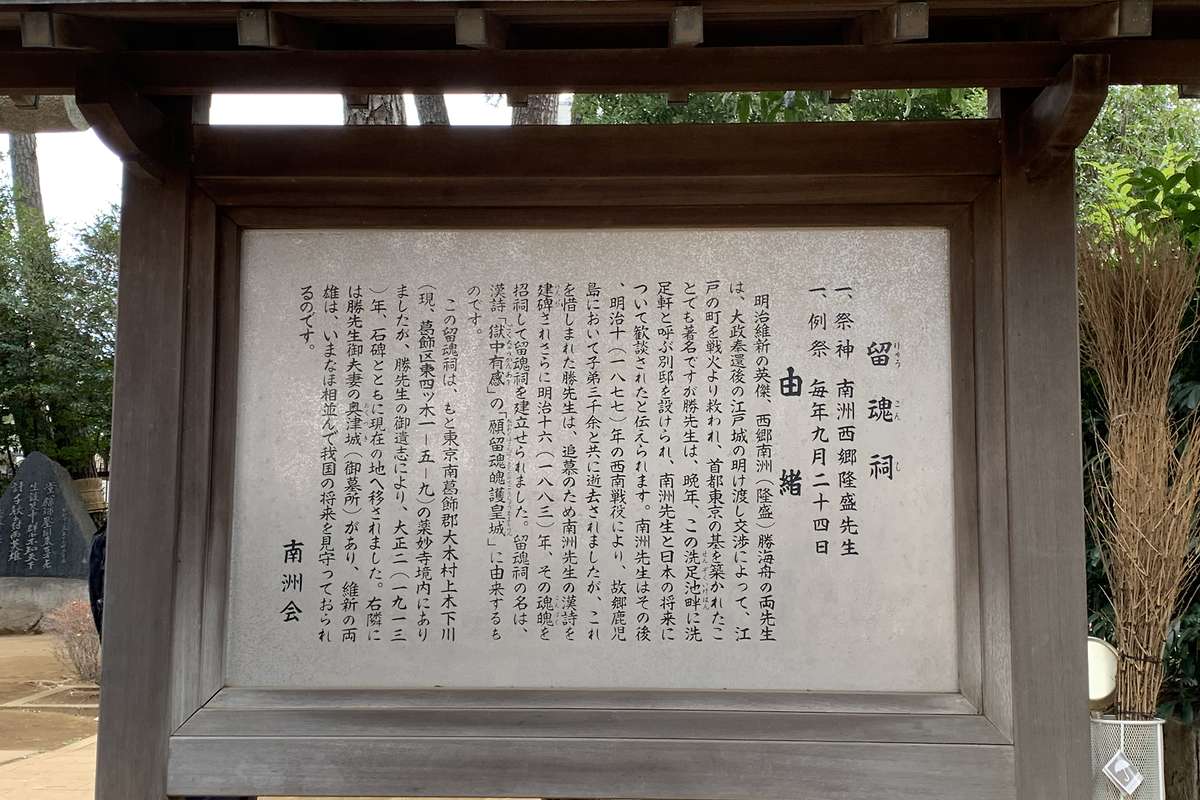 留魂祠
一、祭神 南洲西郷隆盛先生
一、例祭 毎年九月二十四日
由緒
明治維新の英傑、西郷南洲（隆盛）勝海舟の両先生
は、大政奉還後の江戸城の明け渡し交渉によって、江
戸の町を戦火より救われ、首都東京の基を築かれたこ
とでも著名ですが勝先生は、晩年、この洗足池畔に洗
足軒と呼ぶ別邸を設けられ、南洲先生と日本の将来に
ついて歓談されたと伝えられます。南洲先生はその後
、明治十（一八七七）年の西南戦役により、故郷鹿児
島において子弟三千余と共に逝去されましたが、これ
を惜しまれた勝先生は、追慕のため南洲先生の漢詩を
建碑されさらに明治十六（一八八三）年、その魂魄を
招祠して留魂祠を建立せられました。留魂祠の名は、
漢詩「獄中有感」の「願留魂魄護皇城」に由来するも
のです。
この留魂祠は、もと東京南葛飾郡大木村上木下川
（現、葛飾区東四ッ木一ー五ー九）の薬妙寺境内にあり
ましたが、勝先生の御遺志により、大正二（一九一三
）年、石碑とともに現在の地へ移されました。右隣に
は勝先生御夫妻の奥津城（御墓所）があり、維新の両
雄は、いまなほ相並んで我国の将来を見守っておられ
るのです。
南洲会